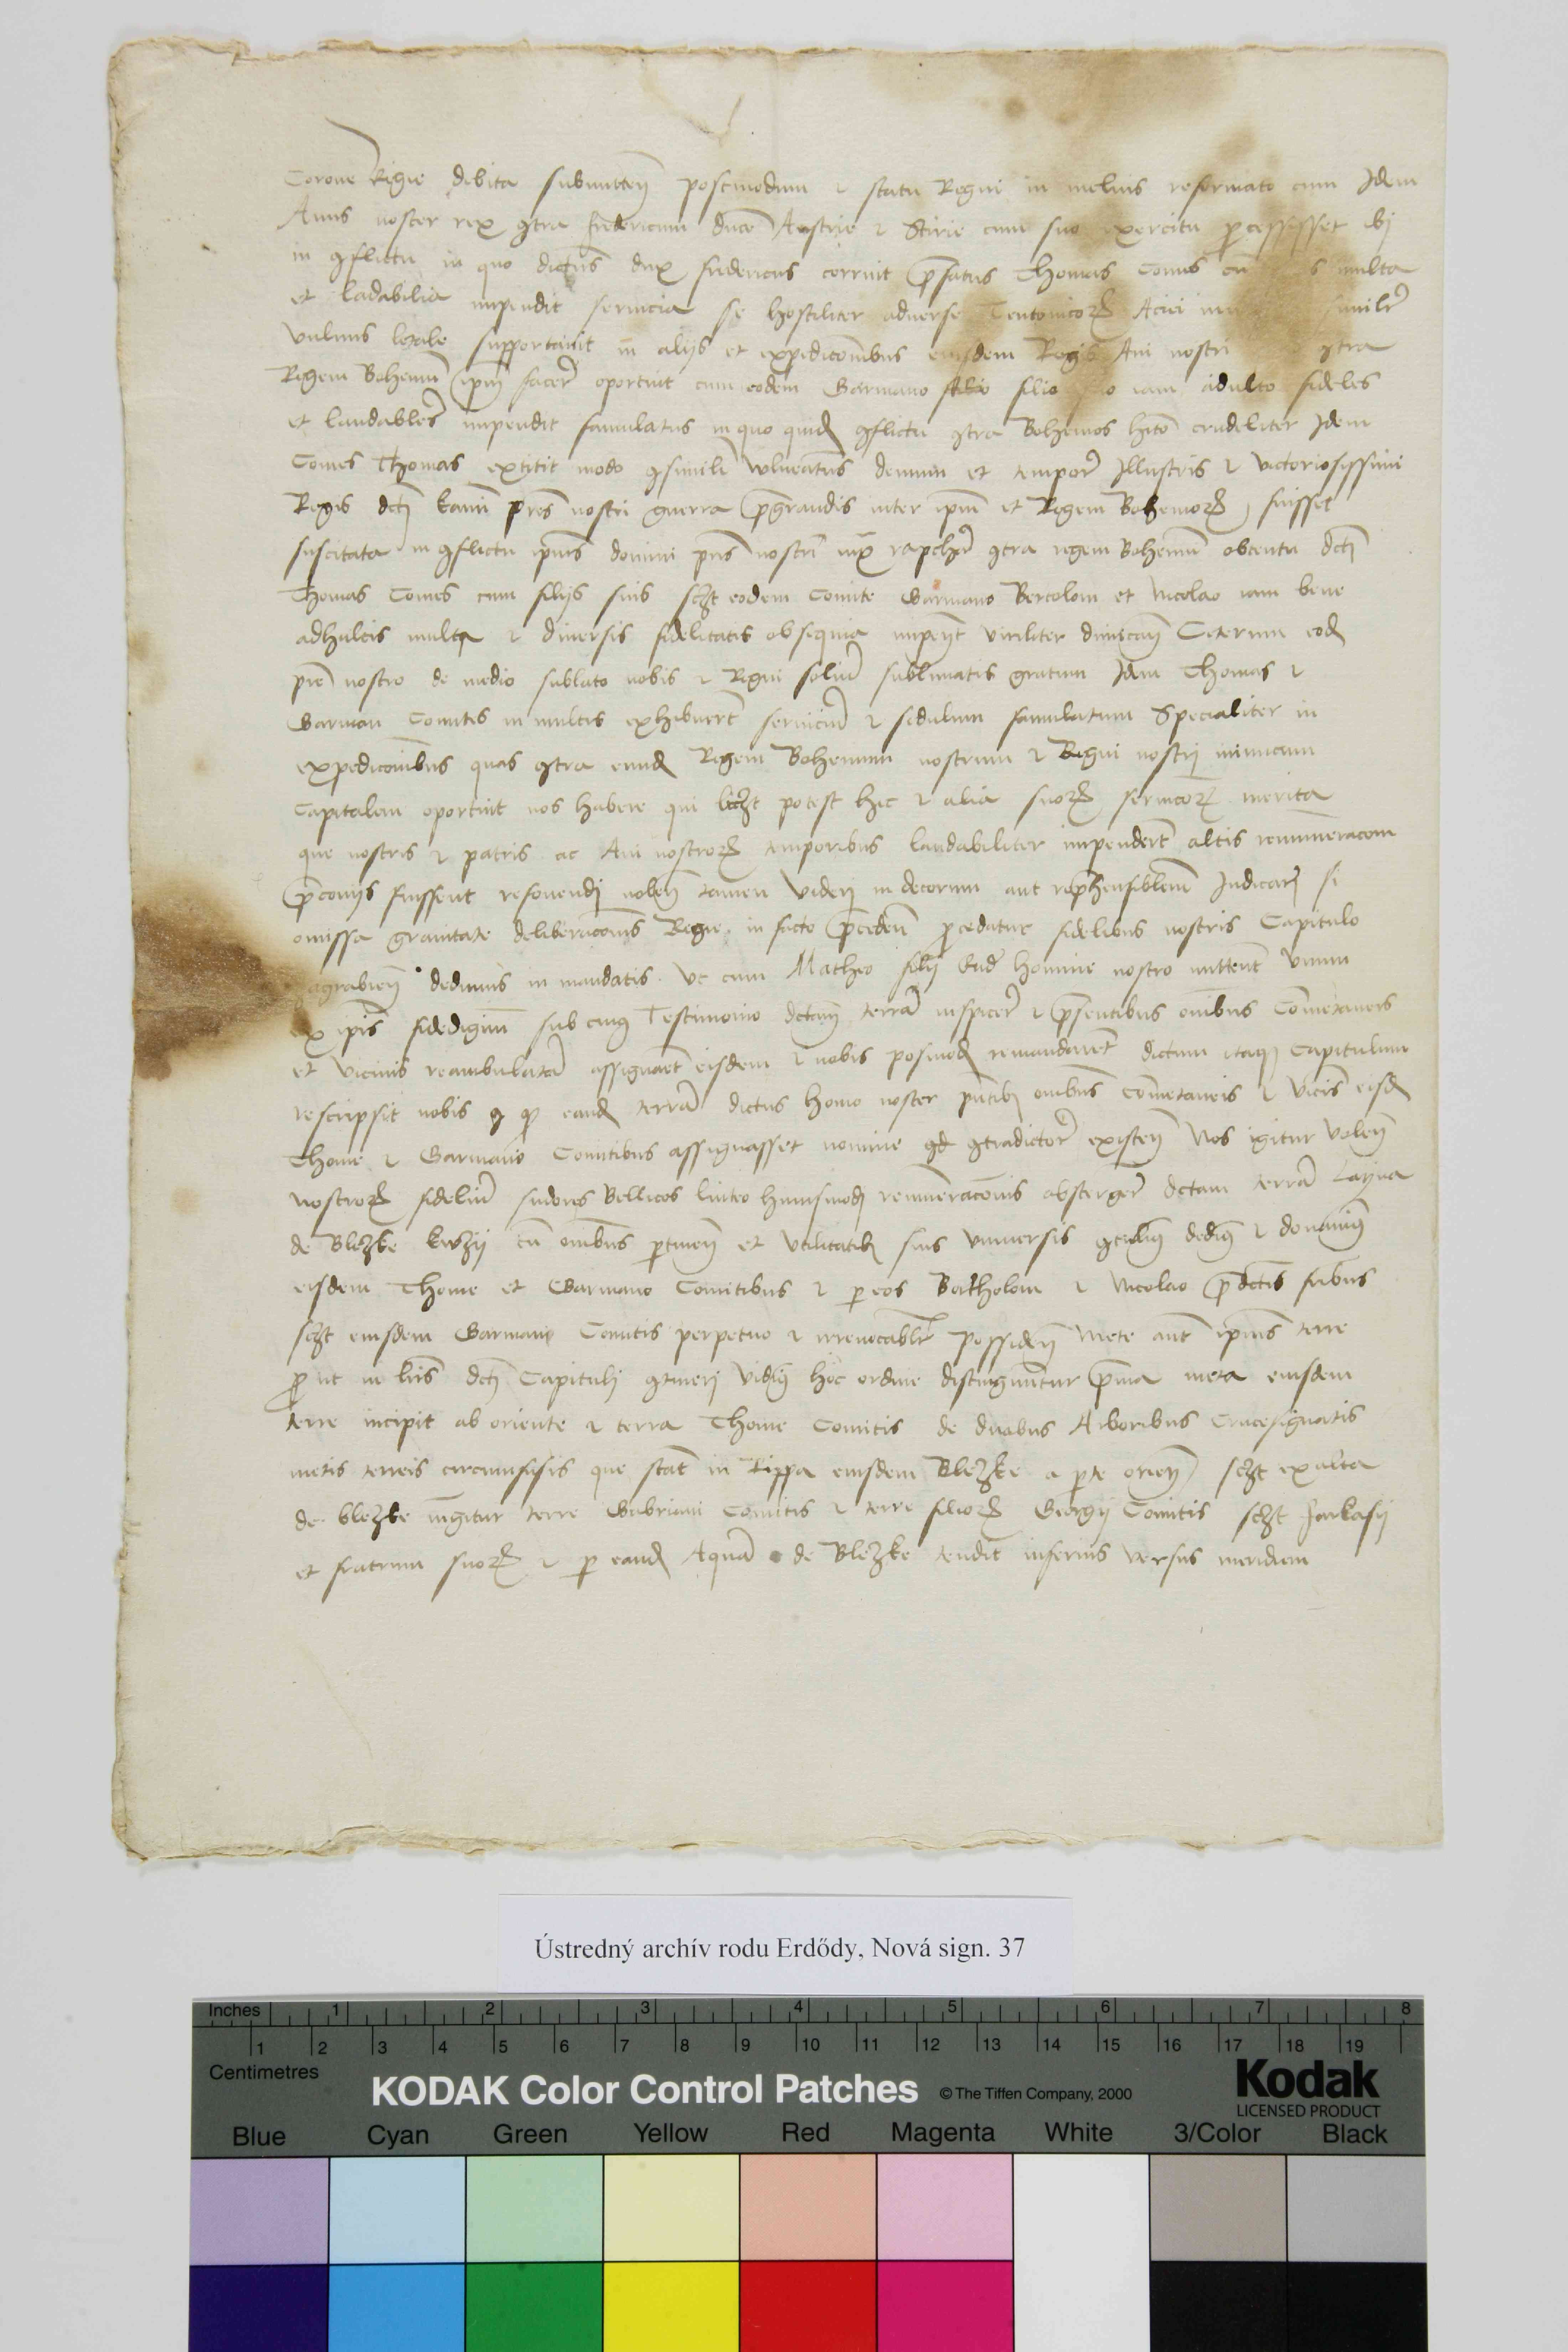 Corone Regie debita submitteñ postmodum et statu Regni in melius reformato cum Idem
Auus noster rex contra fredericum ducē Austrie et Stirie cum suo exercitu processisset ibi
in conflictu in quo dictus dux fridericus corruit prefatus Thomas Comes multa
et ladabilia impendit seruicia se hostiliter aduerse Teutonicorum Aciei similr̄
vulnus letale supportauit in alijs et expedicōibus eiusdem Regis Aui nostri contra
Regem Bohemū ip̄m facer̄ oportuit cum eodem Garmano filio iam adulto fideles
et laudabiles impendit famulatus in quo quidē conflictu contra Bohemos hito crudeliter Idem
Comes Thomas extitit modo consimili wlneratus demum et tempor̄ Illustris et victoriosissimi
Regis dcti Karini pr̄is nostri guerra pregrandis inter ip̄m et Regem Bohemorum fuisset
suscitata in conflictu ip̄ius domini pr̄is nostri iux̄ rapcher̄ contra regem Bohemū obtentu dcti
Thomas Comes cum filijs suis sczt eodem Comite Garmano Bertolom et Nicolao iam bene
adhultis multa et diuersis fidelitatis obsequia impeñt viriliter dimicañ Ceterum eod̄
pr̄e nostro de medio sublato nobis et Regni soliū sublimatis gratum Idem Thomas et
Garman Comitis in multis exhibuerūt seruiciū et sedulum famulatum Specialiter in
expedicōibus quas contra eund̄ Regem Bohemum nostrum et Regni nostri inimicum
Capitalem oportuit nos habere qui liczt potest hec et alia suorum seruicorum merita
que nostris et patris ac Aui nostrorum temporibus laudabiliter impenderūt altis remuneracōm
preconijs fuissent refouendi noleñ tamen videri in decorum aut reprehensiblem Iudicari si
omissa grauitate deliberacōnis Regie in facto precedeñ procedatur fidelibus nostris Capitulo
agrabieñ dedimus in mandatis vt cum Matheo filij homine nostro mitteret vnum
ex ip̄is fidedignū sub cuius Testimonio dctam terrā inspicer̄ et presentibus omībus Cometaneis
et vicinis reambulatā assignaret eisdem et nobis posmod̄ remandaret dictum itaque Capitulum
rescripsit nobis quod eand̄ terrā dictus homo noster pn̄tibus omībus cometaneis et vicis eisd̄
Thome et Garmano Comitibus assignasset nomine contradictor̄ existeñ Nos igitur voleñ
nostrorum fideliū sudores Bellicos linteo huiusmodi remuneracōnis absterger̄ dctam terrā
de Blezke kwzij cū omībus pertineñ et vtilitatibus suis vniuersis dedim et donauim
eisdem Thome et Garmano Comitibus et per eos Bertholom et Nicolao predctis fribus
sczt eiusdem Garmani Comitis perpetuo et irreuocablr̄ possideñ Mete aut ip̄ius terre
pro ut in lr̄is dcti Capituli contineri vidim hoc ordine distinguntur prima meta eiusdem
terre incipit ab oriente et terra Thome Comitis de duabus Arboribus Crucesignatis
metis terreis circumfusis que stat in Rippa eiusdem Blezke a parte orieñ sczt exalta
de blezke iungitur terre Gabriani Comitis et terre filiorum Georgij Comitis sczt farkasij
et fratrum suorum et per eand̄ Aquā de Blezke tendit inferius versus meridiem
Ústredný archív rodu Erdődy, Nová sign. 37
Inches 1 2 3 4 5 6 7 8
1 2 3 4 5 6 7 8 9 10 11 12 13 14 15 16 17 18 19
Centimetres
KODAK Color Control Patches © The Tiffen Company, 2000 Kodak
LICENSED PRODUCT
Blue Cyan Green Yellow Red Magenta White 3/Color Black